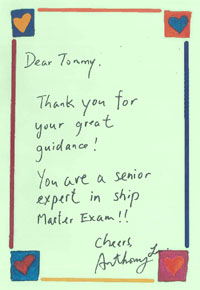 Dear Tommy.
Thank you for
your great
guidance!
You are a senior
expert in ship
Master Exam!!
Cheers,
Anthony